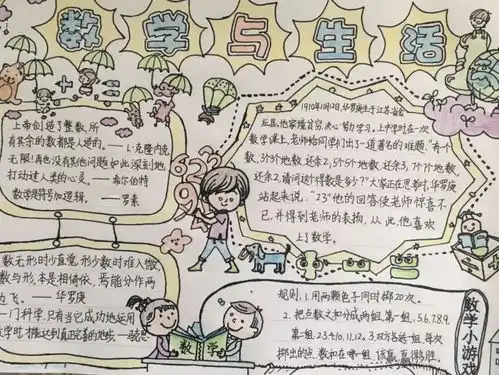 数学与生活
上帝创造了整数,所
有其余的数都是人造的。——L·克隆内克
无限!再也没有其他问题如此深刻地
打动过人类的心灵。——希尔伯特
数学是符号加逻辑。——罗素
数无形时少直觉,形少数时难入微,
数与形,本是相倚依,焉能分作两
边飞。——华罗庚
一门科学,只有当它成功地运用
数学时,才能达到真正完善的地步
1910年11月12日,华罗庚生于江苏省
坛县,他家境贫穷,决心努力学习。上中学时,在一次
数学课上,老师给同学们出了一道著名的难题:“有个
数,3个3个地数,还余2,5个5个地数,还余3,7个7个地数,
还余2,请问这个得数是多少?”大家正在思考时,华罗庚
站起来说:“23”他的回答使老师惊喜不
已,并得到老师的表扬,从此,他喜欢
上了数学。
数学
规则:1.用两颗色子同时掷20次。
2.把点数之和分成两组,第一组,5.6.7.8.9.
第一组,2.3.4.10.11.12。3.双方各选一组,每次
掷出的点数和在哪一组,该赢,赢得多胜
数学小游戏